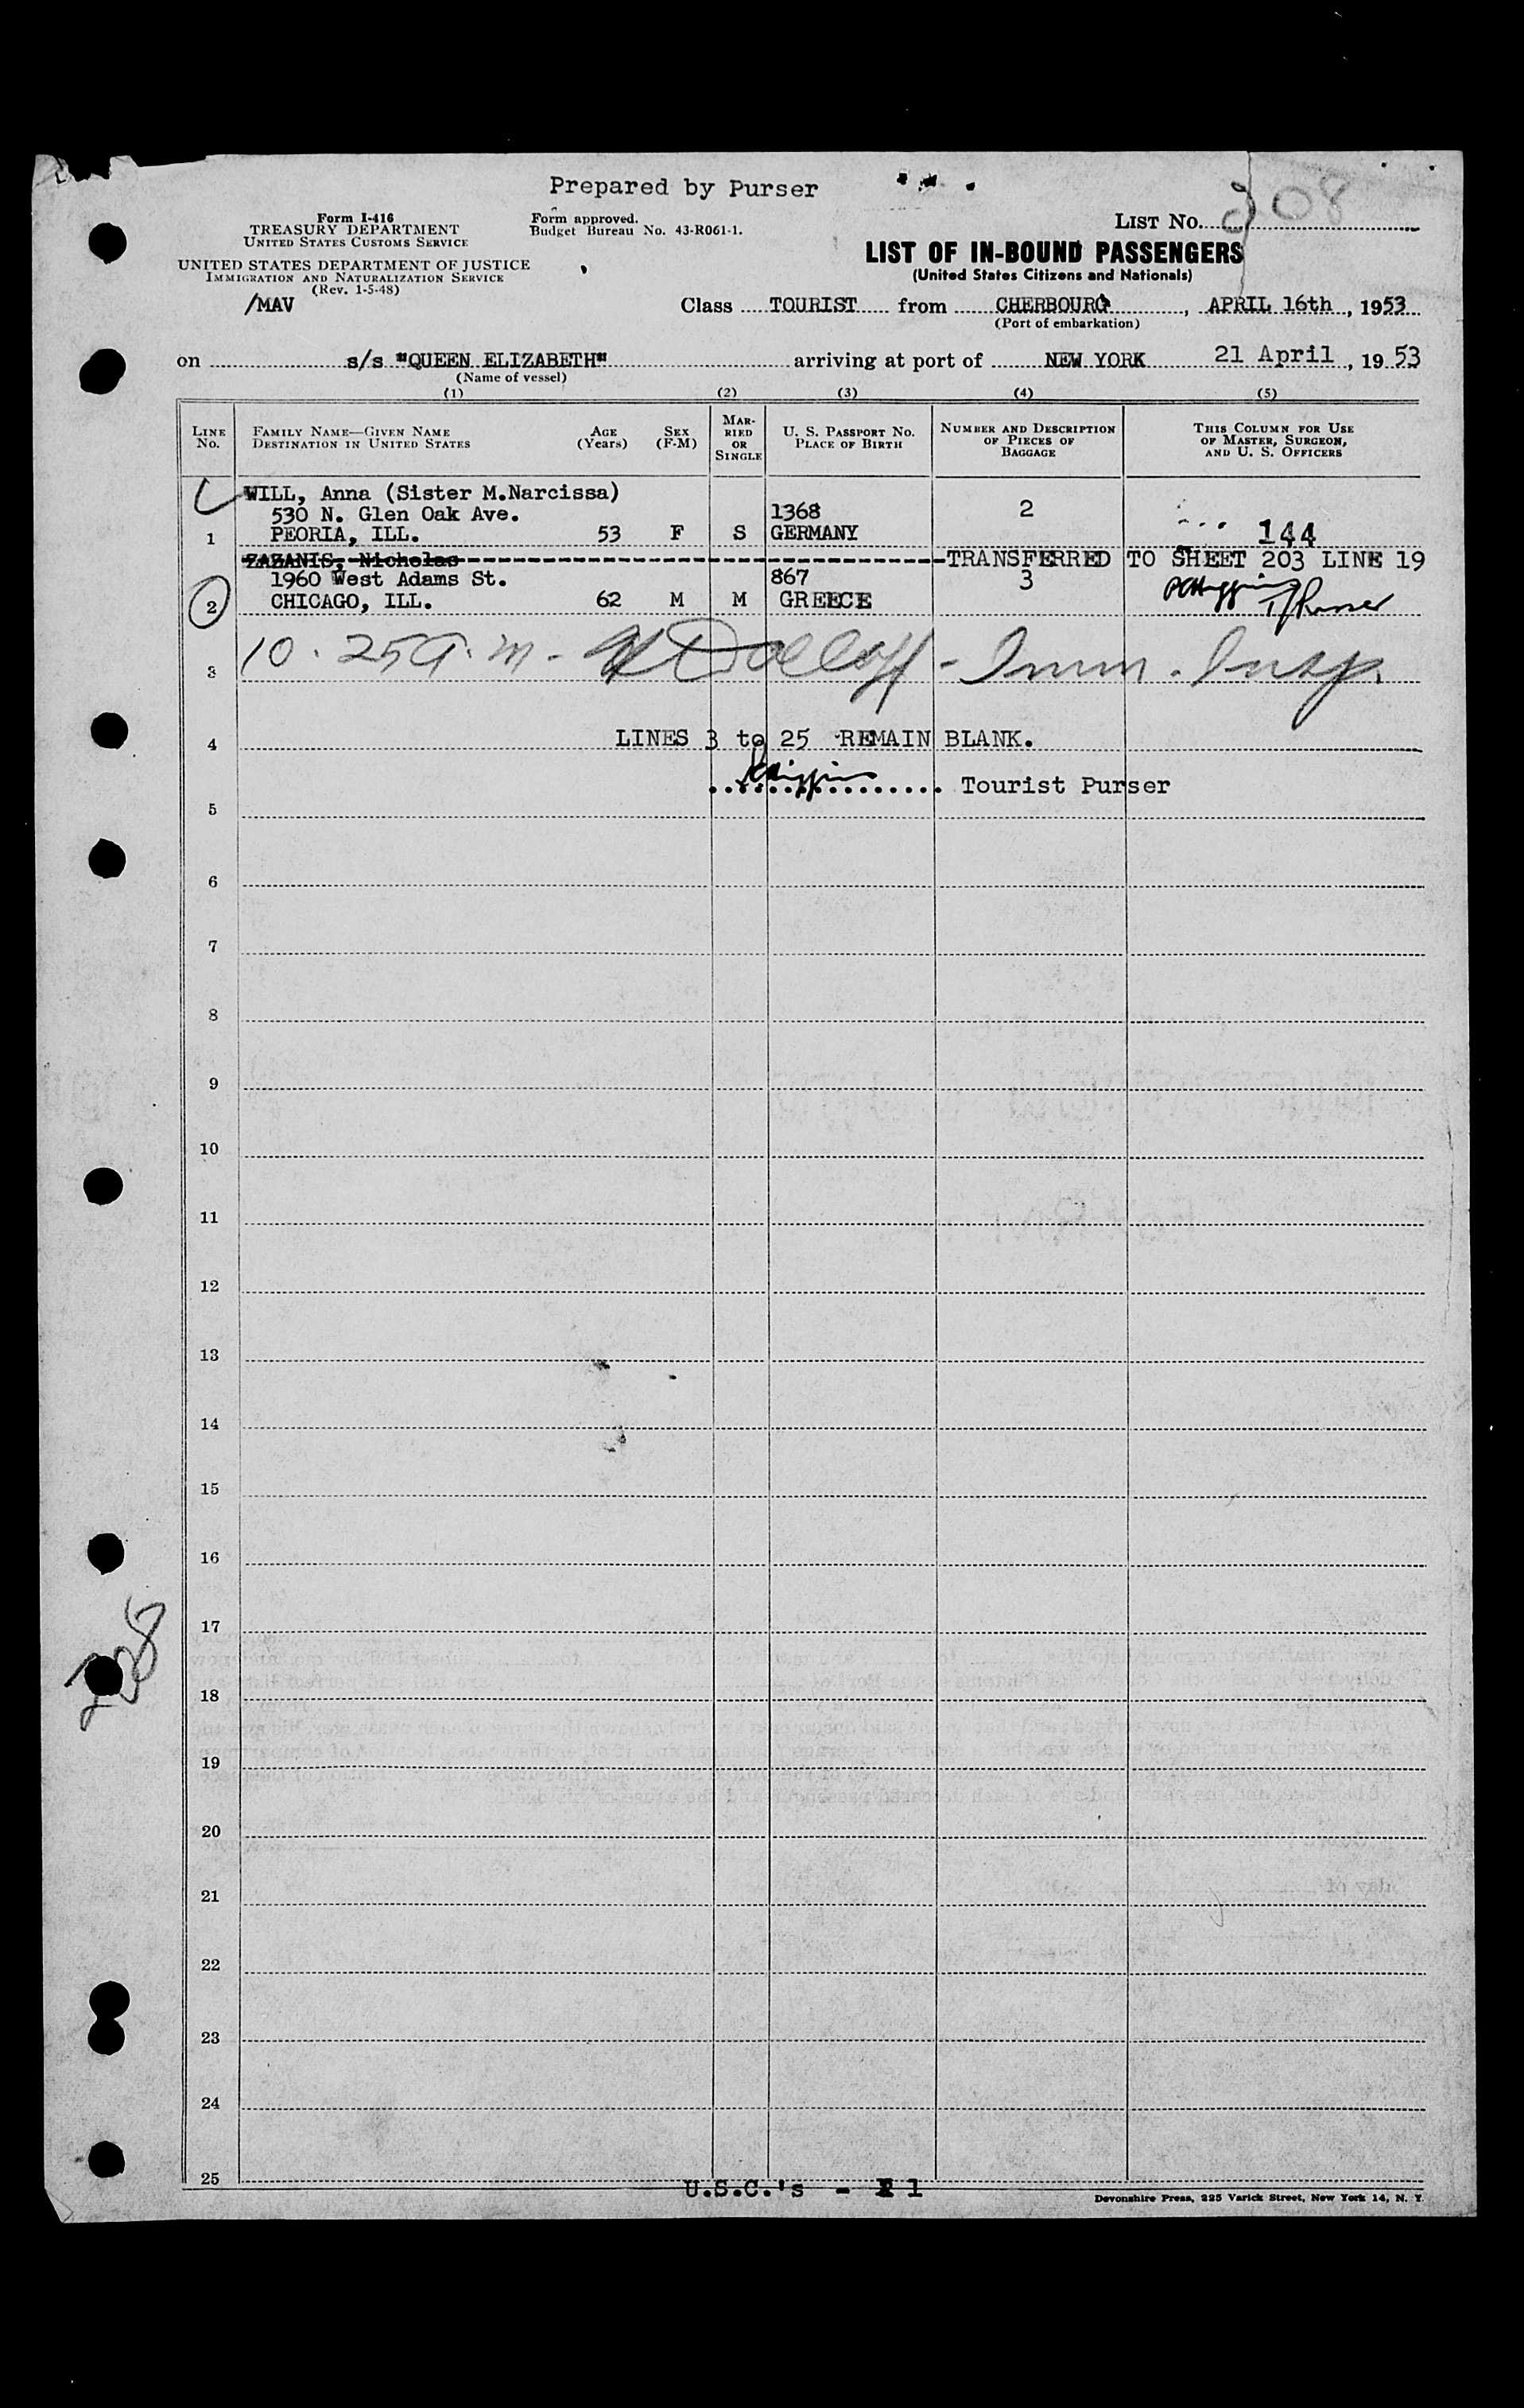 Prepared by Purser
Form I-416
TREASURY DEPARTMENT
UNITED STATES CUSTOMS SERVICE
UNITED STATES DEPARTMENT OF JUSTICE
IMMIGRATION AND NATURALIZATION SERVICE
(Rev. 1-5-48)
/MAV
Form approved.
Budget Bureau No. 43-R061-1.
LIST NO. 208
LIST OF IN-BOUND PASSENGERS
(United States Citizens and Nationals)
Class TOURIST from CHERBOURG, APRIL 16th, 1953
(Port of embarkation)
on s/s "QUEEN ELIZABETH" arriving at port of NEW YORK 21 April, 1953
(Name of vessel)
(1) (2) (3) (4) (5)
LINE NO.
FAMILY NAME—GIVEN NAME
DESTINATION IN UNITED STATES
AGE (Years)
SEX (F-M)
MARRIED OR SINGLE
U. S. PASSPORT NO.
PLACE OF BIRTH
NUMBER AND DESCRIPTION OF PIECES OF BAGGAGE
THIS COLUMN FOR USE OF MASTER, SURGEON, AND U. S. OFFICERS
WILL, Anna (Sister M.Narcissa)
530 N. Glen Oak Ave. 1368 2
1 PEORIA, ILL. 53 F S GERMANY 144
ZAZANIS, Nicholas TRANSFERRED TO SHEET 203 LINE 19
1960 West Adams St. 867 3
2 CHICAGO, ILL. 62 M M GREECE
T/Purser
3 10.25 a.m. - Imm. Insp.
4 LINES 3 to 25 REMAIN BLANK.
Tourist Purser
5
6
7
8
9
10
11
12
13
14
15
16
17
208
18
19
20
21
22
23
24
25
U.S.C.'s - 1
Devonshire Press, 225 Varick Street, New York 14, N. Y.